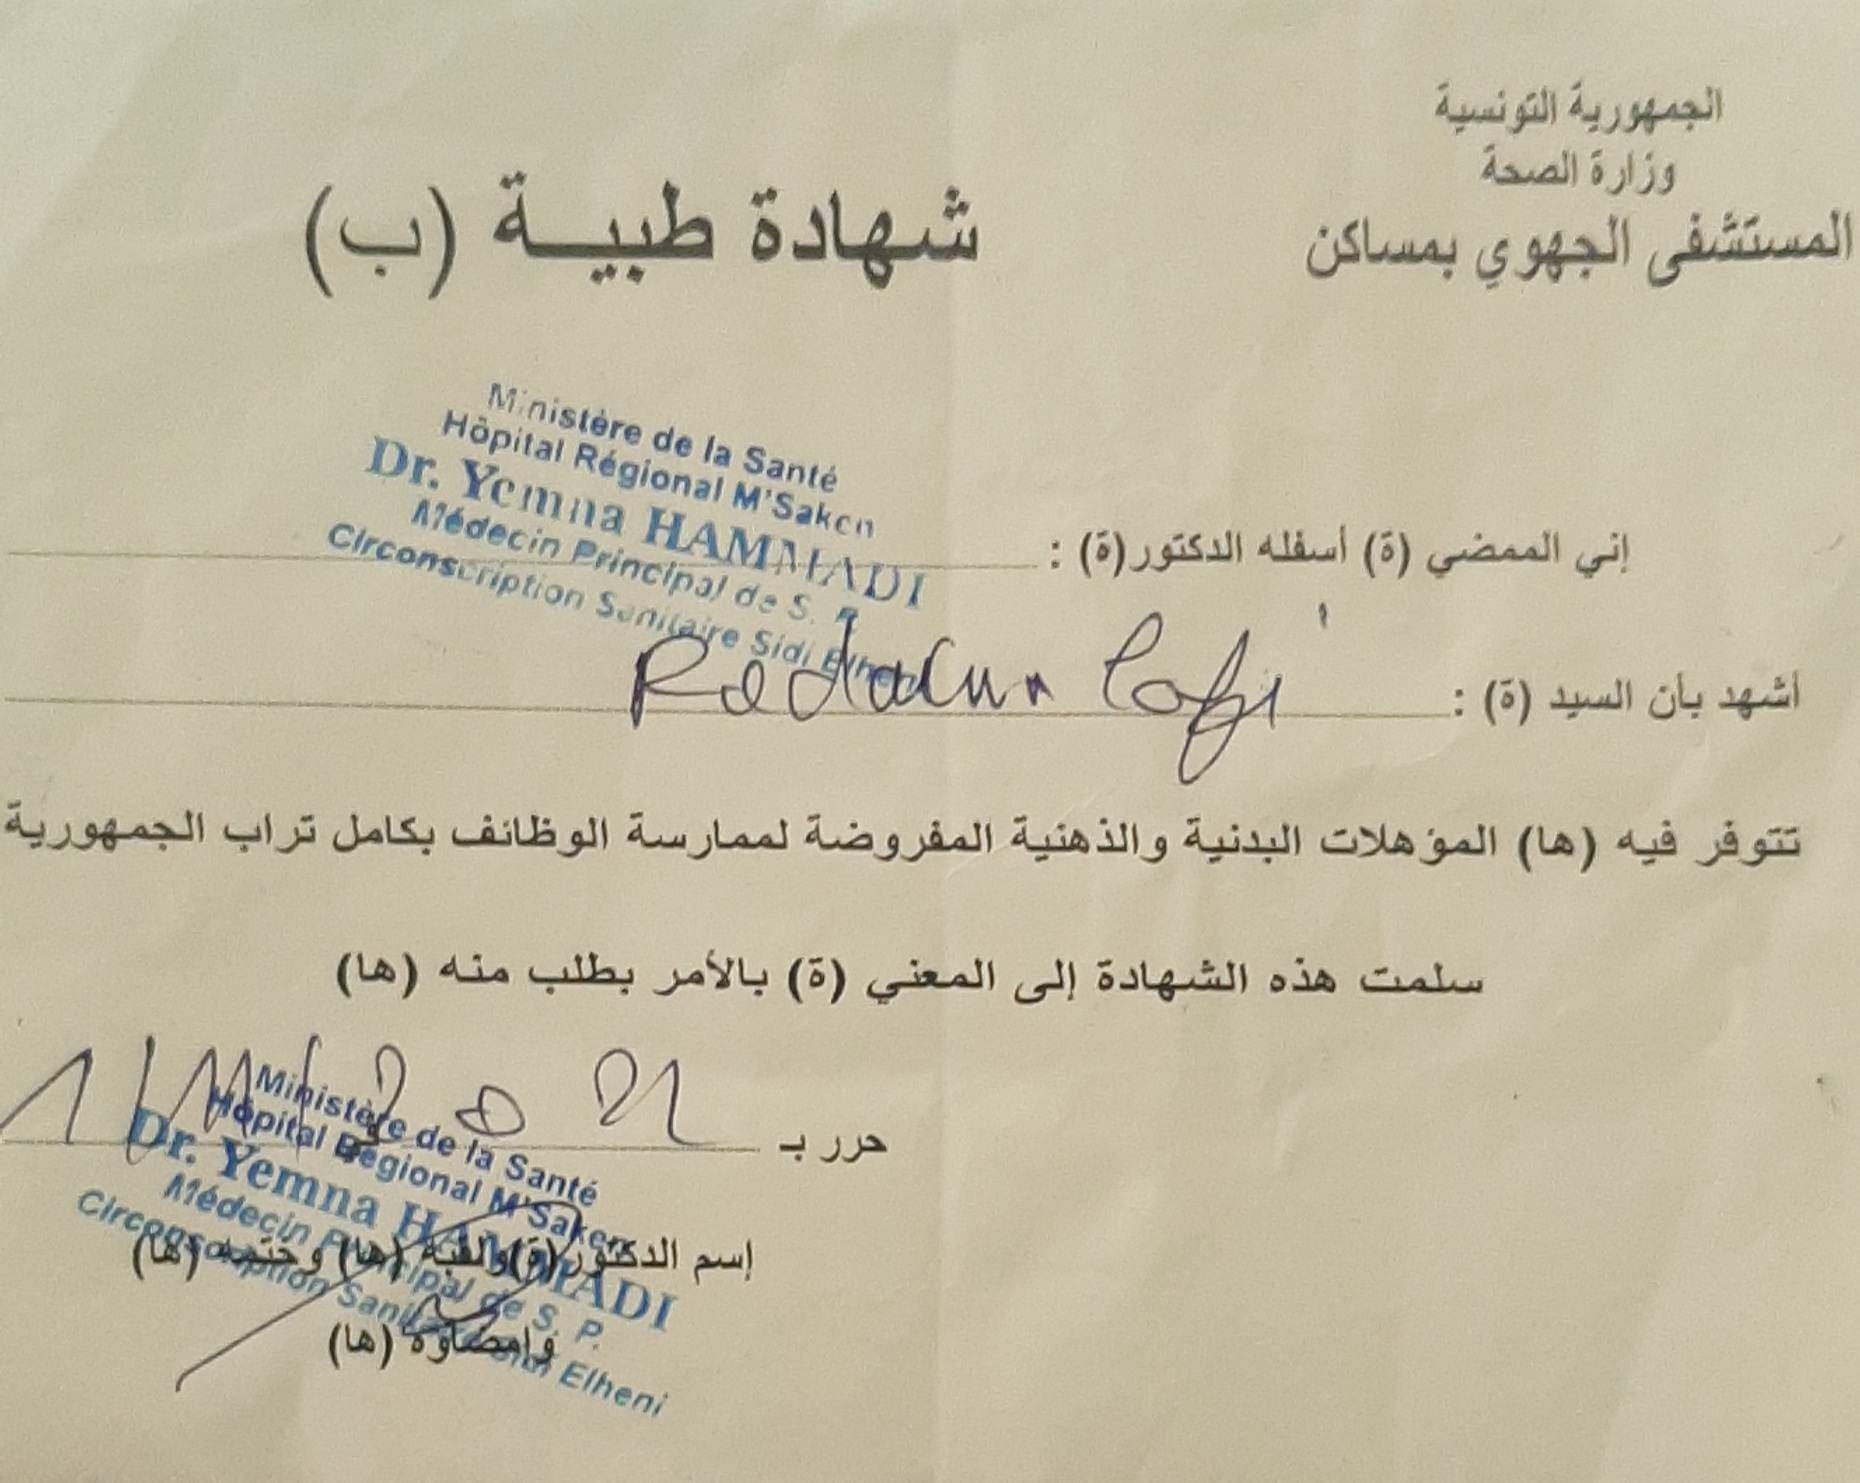 الجمهورية التونسية
وزارة الصحة
المستشفى الجهوي بمساكن
شهادة طبية (ب)
Ministère de la Santé
Hôpital Régional M'Saken
Dr. Yemna HAMMADI
Médecin Principal de S. P.
Circonscription Sanitaire Sidi Elheni
إني الممضي (ة) أسفله الدكتور(ة) :
أشهد بأن السيد (ة) :
تتوفر فيه (ها) المؤهلات البدنية والذهنية المفروضة لممارسة الوظائف بكامل تراب الجمهورية
سلمت هذه الشهادة إلى المعني (ة) بالأمر بطلب منه (ها)
حرر بـ في
Ministère de la Santé
Hôpital Régional M'Saken
Dr. Yemna HAMMADI
Médecin Principal de S. P.
Circonscription Sanitaire Sidi Elheni
إسم الدكتور(ة) ولقبه (ها) وختمه (ها)
وإمضاؤه (ها)